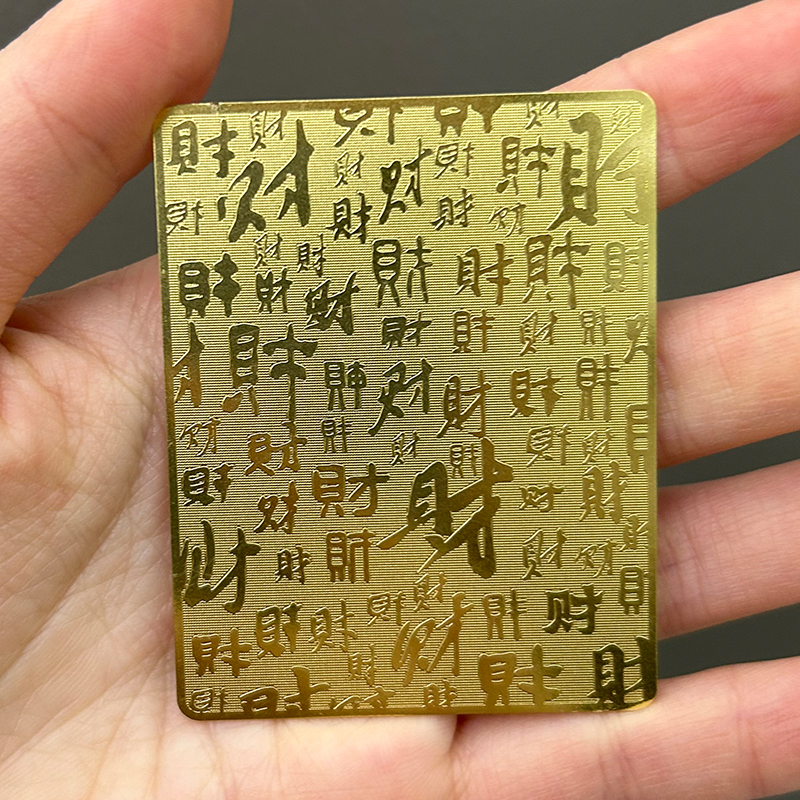 財 財 財 財
財 财 財 财 財 財 財
財 財 財 财
財 財 財 財 財 財
財 財 財
財 財 財 財
財 財 财 財 財 財
财 財 財 財 財 財 財
財 财 財 財 财 財
财 財 財 財 财 財
財 財 財 財 财 財 财
財 財 財 財
財 財 財